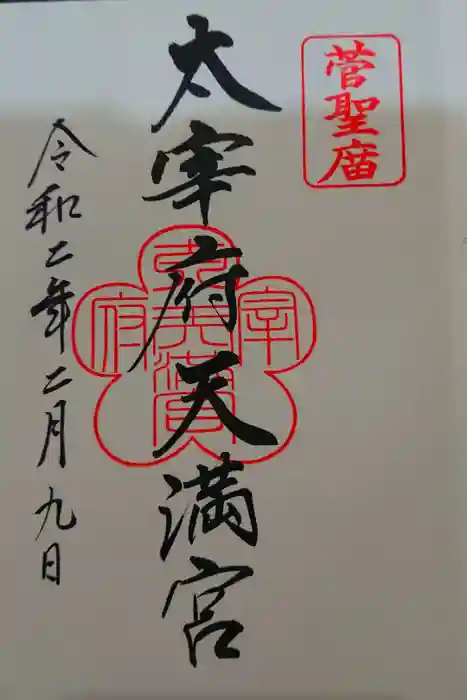 菅聖廟
太宰府天満宮
令和二年二月九日